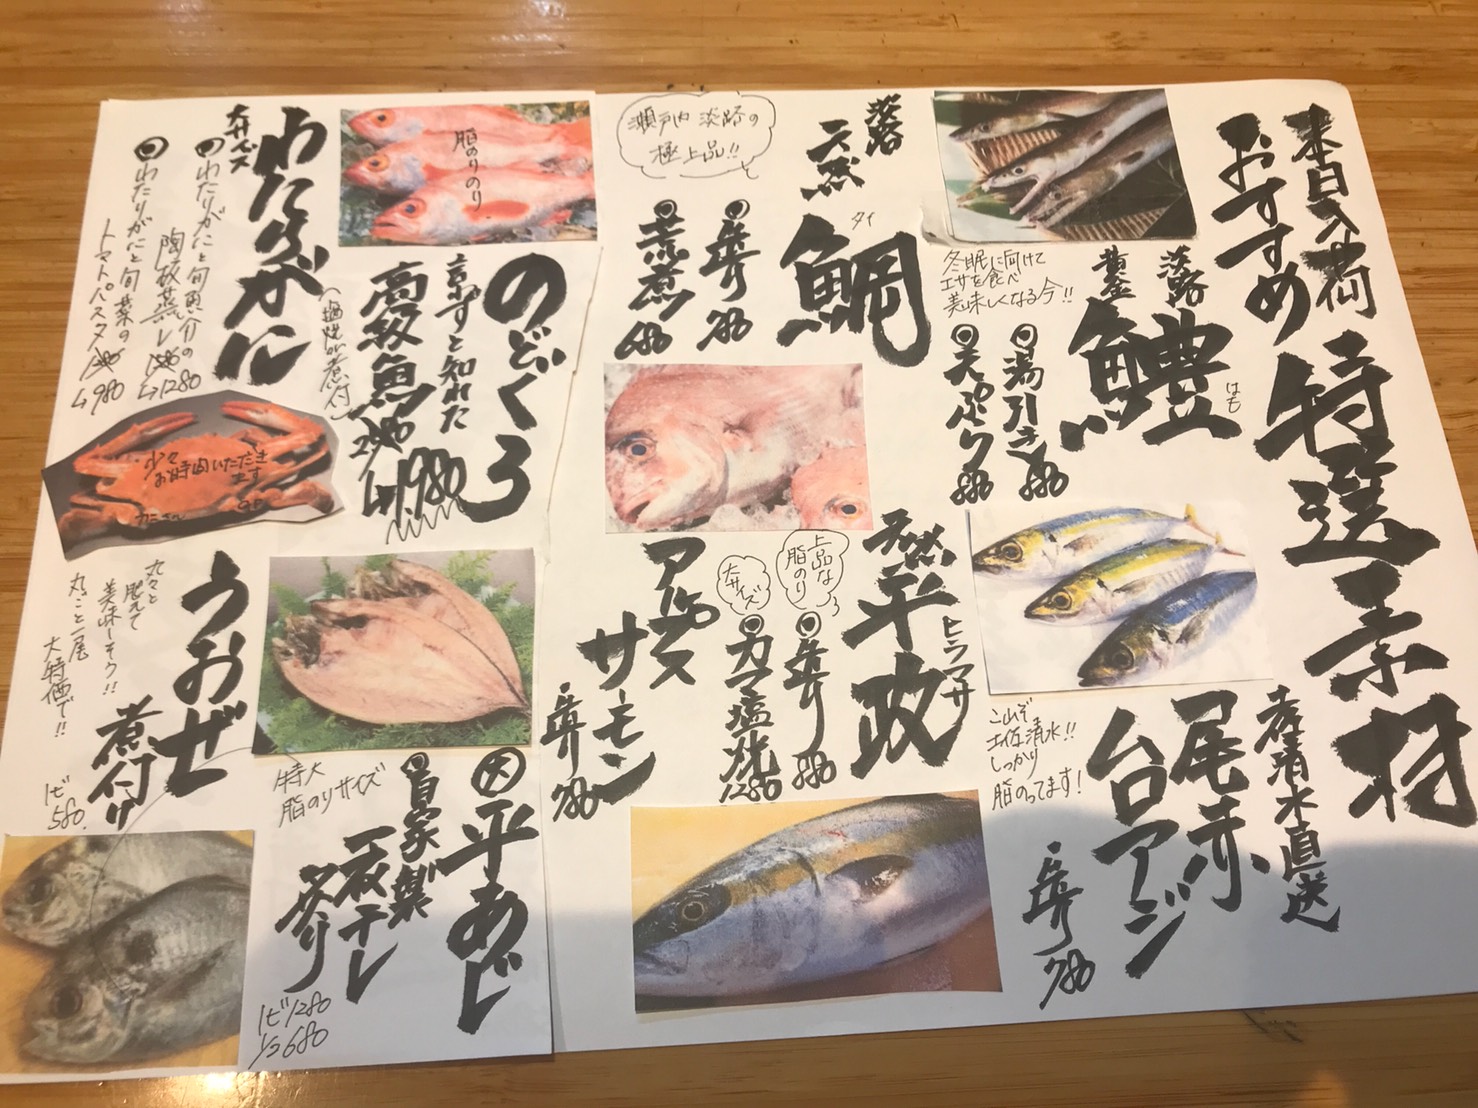 本日入荷
おすすめ
特選素材
淡路
黄金
鱧
はも
冬眠に向けて
エサを食べ
美味しくなる今!!
湯引き 880
天ぷら 880
土佐清水直送
尾赤
台アジ
土佐清水!!
しっかり
脂のってます!
・造り 780
淡路
天然
鯛
タイ
瀬戸内 淡路の
極上品!!
造り 780
荒煮 680
天然
平政
ヒラマサ
上品な
脂のり
大サイズ
造り 880
カマ塩焼 1280
サーモン
・造り 780
のどぐろ
言わずと知れた
高級魚
(塩焼or煮付)
2980
→1980
脂のりのり
わたりがに
大サイズ
わたりがにと旬魚介の
陶板蒸し
→1280
わたりがにと旬菜の
トマトパスタ
→980
少々
お時間いただき
ます
平あじ
自家製
一夜干し
炙り
特大
脂のりサイズ
1ピ 1280
1/2 680
うおぜ
煮付け
丸々と
肥えて
美味しそう!!
丸ごと一尾
大特価で!!
1ピ
580.